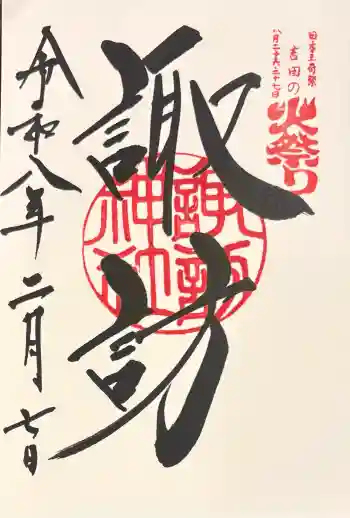 日本三奇祭
吉田の
火祭り
八月二十六・二十七日
諏訪
諏訪
神社
令和八年二月七日